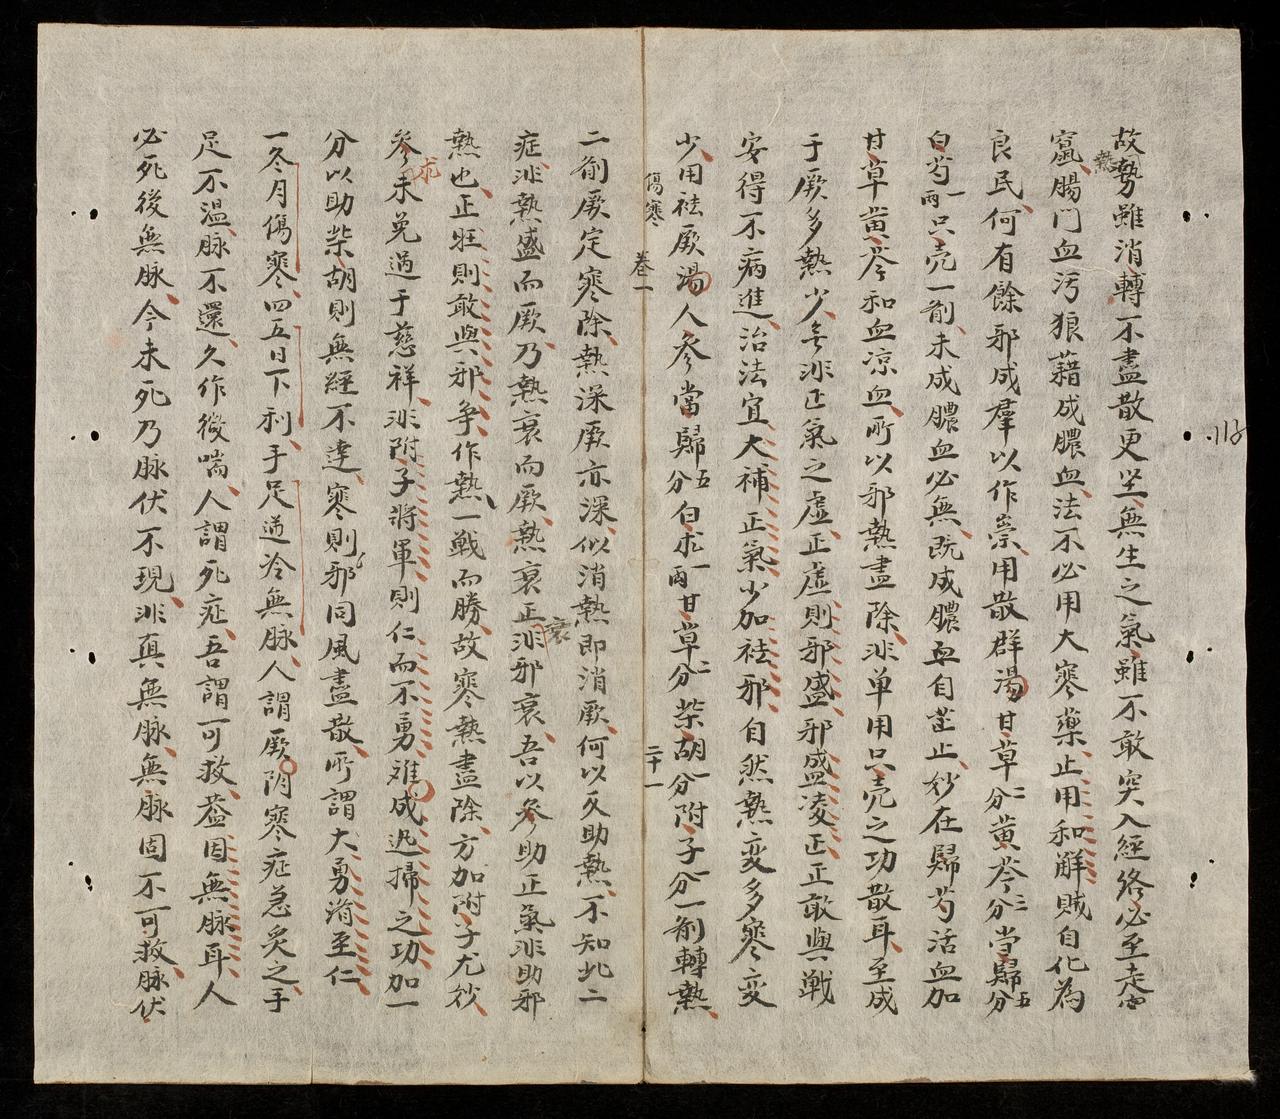 故勢雖消轉不盡散更坐無生之氣雖不敢突入經絡必至走
熱
竄腸門血污狼藉成膿血法不必用大寒藥止用和解賊自化為
良民何有餘邪成羣以作祟用散群湯甘草二分黄芩三分當歸五分
白芍一兩只壳一剤未成膿血必無既成膿血自當止妙在歸芍活血加
甘草黄芩和血凉血所以邪熱盡除非单用只壳之功散耳至成
于厥多熱少無非正氣之虛正虛則邪盛邪盛凌正正敢與戦
安得不病進治法宜大補正氣少加祛邪自然熱变多寒变
少用祛厥湯人參當歸五分白术一兩甘草二分柴胡一分附子一分一剤轉熱
傷寒 卷一 二十一
二剤厥定寒除熱深厥亦深似消熱即消厥何以反助熱不知此二
症非熱盛而厥乃熱衰而厥熱衰正非邪衰吾以參助正氣非助邪
衰
熱也正旺則敢與邪争作熱一戦而勝故寒熱盡除方加附子尤妙
參术未免過于慈祥非附子將軍則仁而不勇难成迅掃之功加一
术
分以助柴胡則無經不達寒則邪同風盡散所謂大勇濟至仁
一冬月傷寒四五日下利手足逆冷無脉人謂厥阴寒症急炙之手
足不溫脉不還久作微喘人謂死症吾謂可救蓋因無脉耳人
必死後無脉今未死乃脉伏不現非真無脉無脉固不可救脉伏